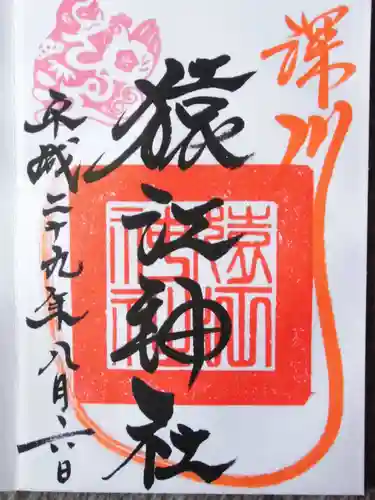 深川
猿江神社
平成二十九年八月六日